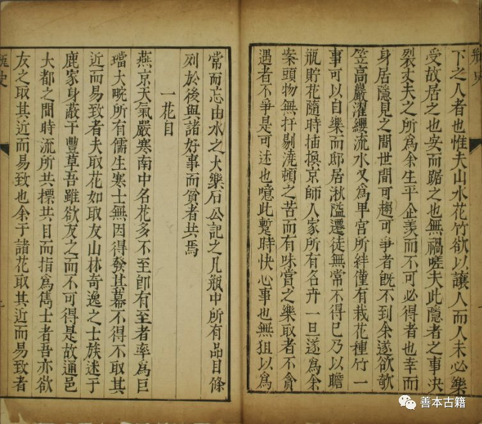 下之人者也惟夫山水花竹欲以讓人而人未必樂
受故居之也安而踞之也無禍嗟夫此隱者之事決
裂丈夫之所為余生平企羨而不可必得者也幸而
身居隱見之間世間可趨可爭者既不到余遂欲欹
笠高巖濯纓流水又為卑官所絆僅有栽花種竹一
事可以自樂而邸居湫隘遷徙無常不得已乃以膽
瓶貯花隨時插換京師人家所有名卉一旦遂為余
案頭物無扦剔澆頓之苦而有味賞之樂取者不貪
遇者不爭是可述也噫此暫時快心事也無狃以為
常而忘山水之大樂石公記之凡瓶中所有品目條
列於後與諸好事而貧者共焉
一花目
燕京天氣嚴寒南中名花多不至即有至者率為巨
璫大畹所有儒生寒士無因得發其幕不得不取其
近而易致者夫取花如取友山林奇逸之士族迷于
鹿豕身蔽于豐草吾雖欲友之而不可得是故通邑
大都之間時流所共標共目而指為雋士者吾亦欲
友之取其近而易致也余于諸花取其近而易致者
瓶史
善本古籍